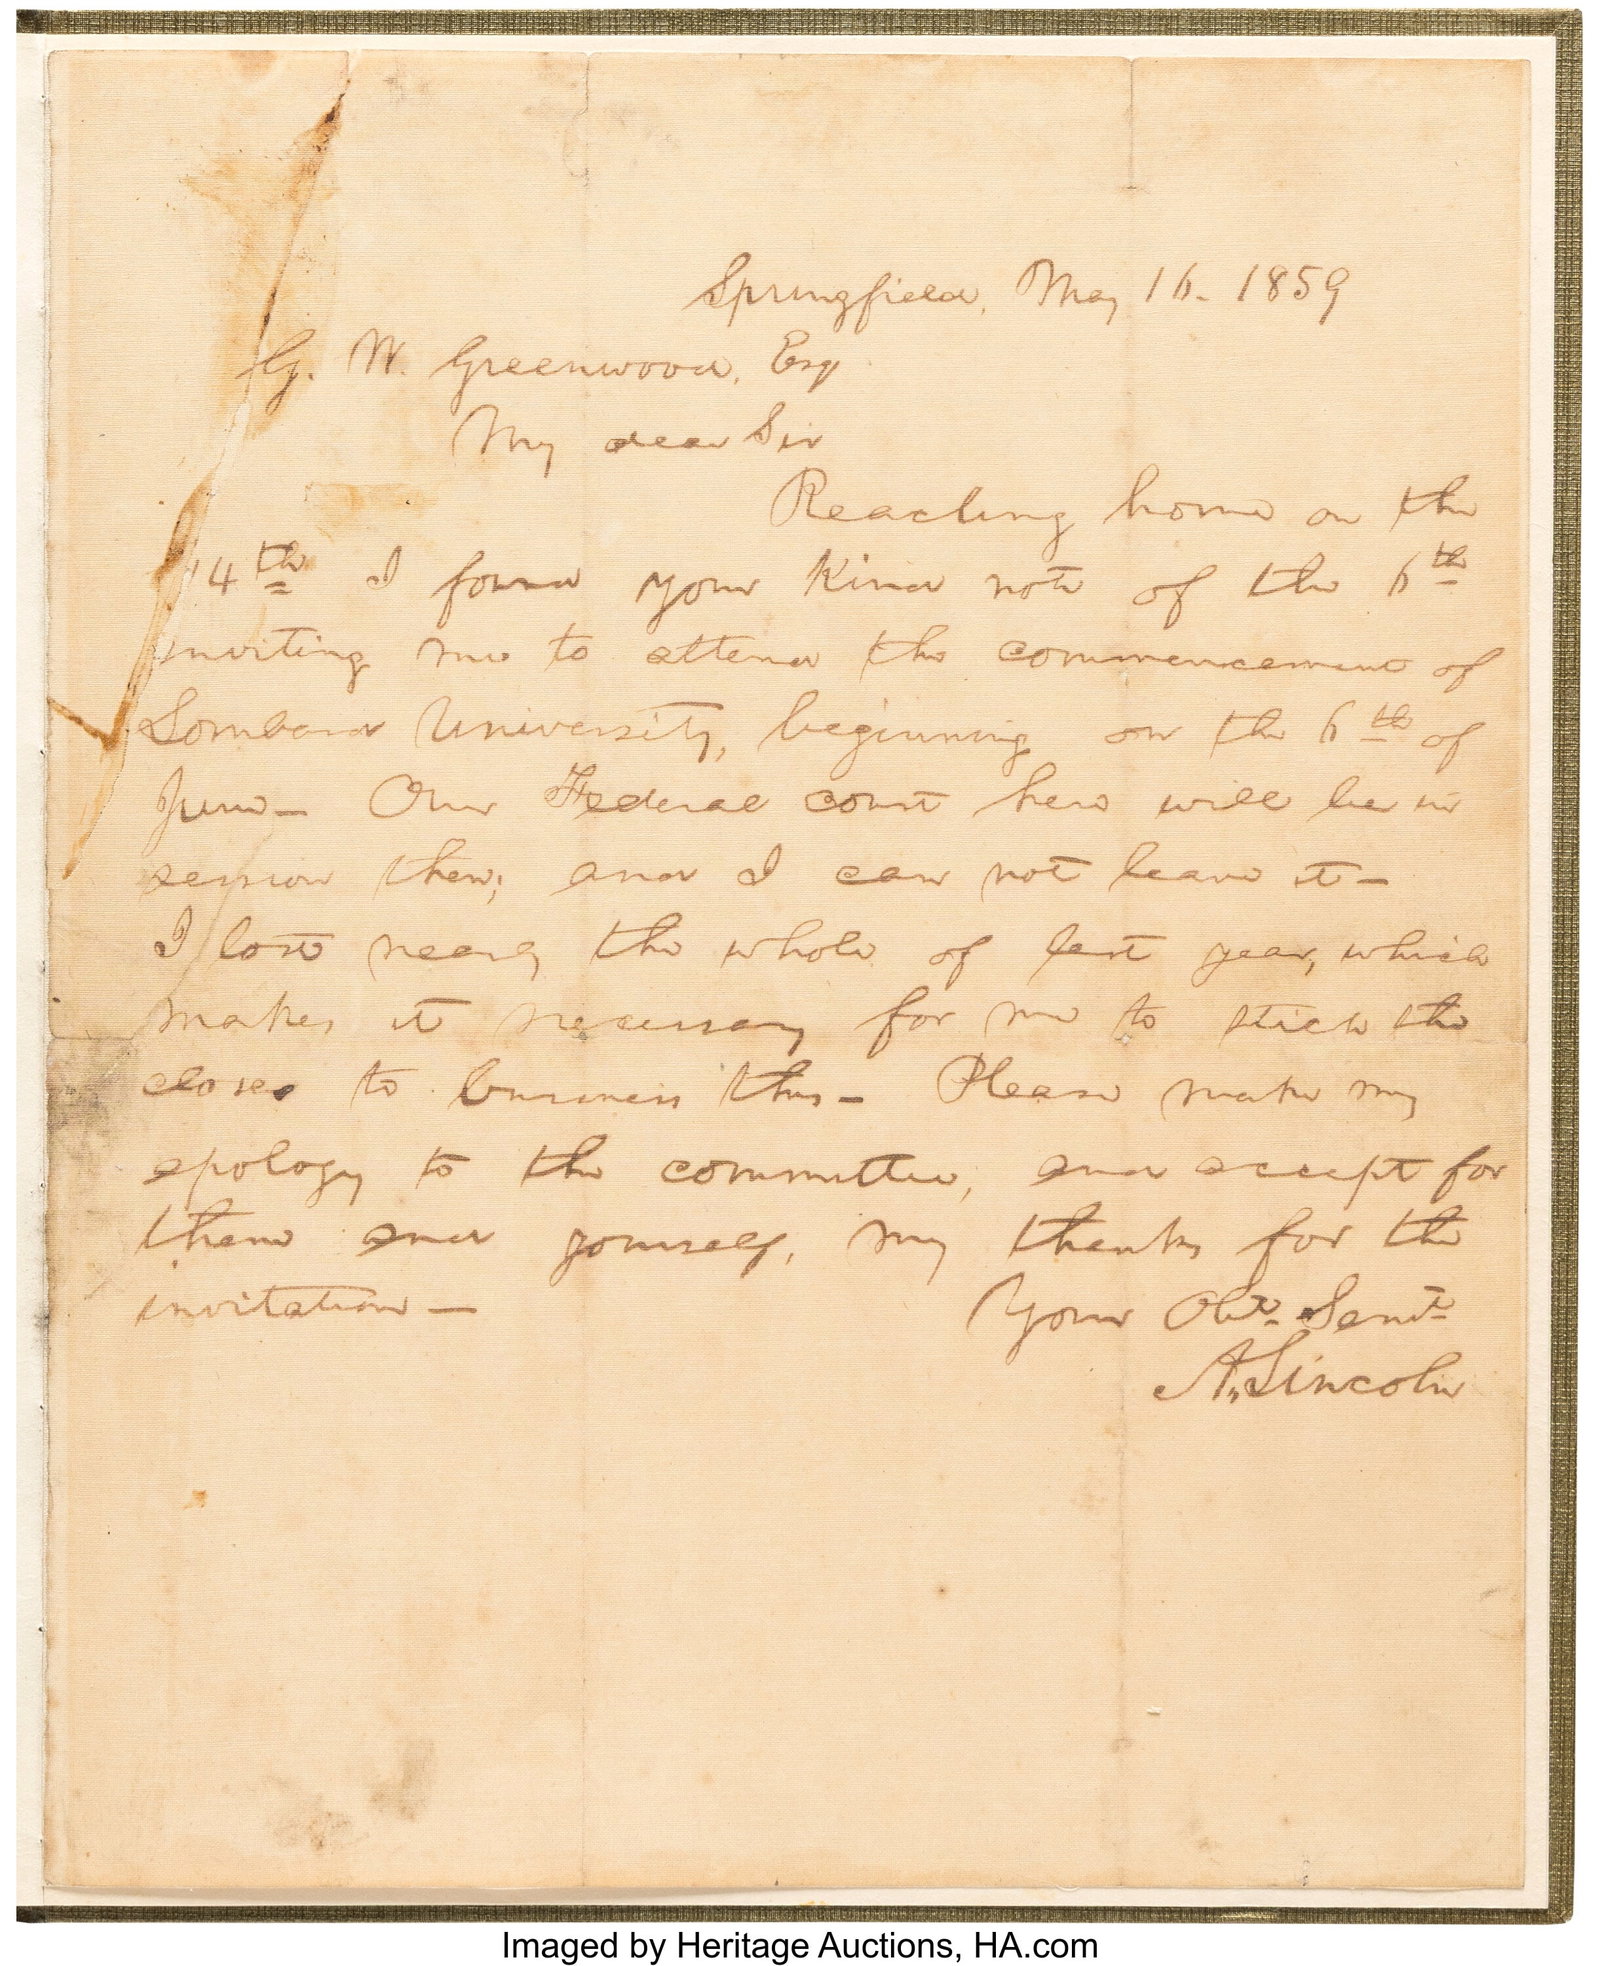 Springfield, May 16. 1859
G. W. Greenwood, Esq
My dear Sir
Reaching home on the
14th I found your kind note of the 6th
inviting me to attend the commencement of
Lombard University, beginning on the 6th of
June— Our Federal court here will be in
session then; and I can not leave it—
I lost nearly the whole of last year, which
makes it necessary for me to stick the
closer to business this— Please make my
apology to the committee, and accept for
them and yourself, my thanks for the
invitation—
Your Obt. Servt.
A. Lincoln
Imaged by Heritage Auctions, HA.com